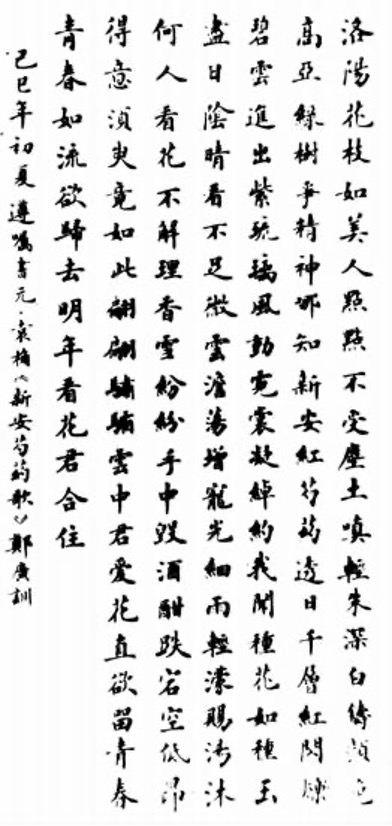 洛陽花枝如美人點點不受塵土嗔輕朱深白顏色
高亞綠樹爭精神那知新安紅芍藥透日千層紅閃爍
碧雲進出紫琉璃風動霓裳凝綽約我聞種花如種玉
盡日陰晴看不足微雲澹蕩增寵光細雨輕濛賜湯沐
何人看花不解理香雪紛紛手中毀酒酣跌宕空低昂
得意湏臾竟如此翩翩雲中君愛花直欲留青春
青春如流欲歸去明年看花君合住
己巳年初夏遵囑書元·袁桷《新安芍药歌》鄭廣訓